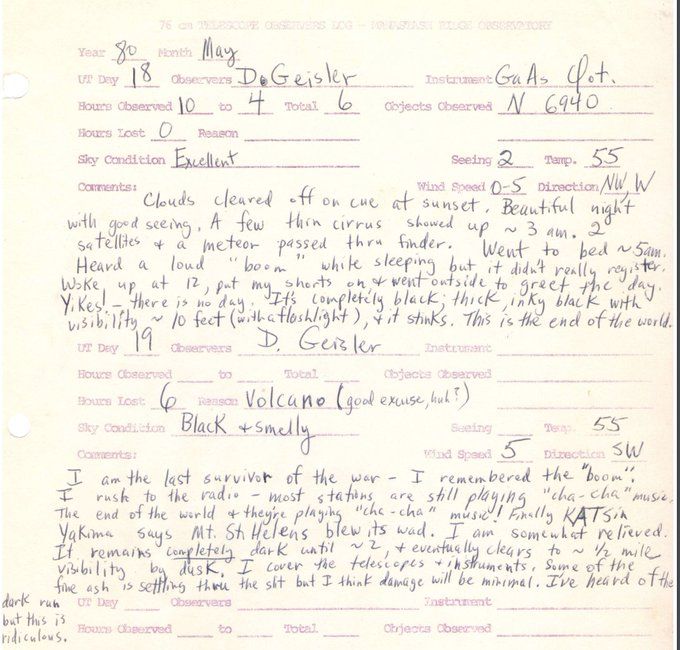 76 cm TELESCOPE OBSERVERS LOG - MANASTASH RIDGE OBSERVATORY
Year 80 Month May
UT Day 18 Observers D. Geisler Instrument GaAs Φot.
Hours Observed 10 to 4 Total 6 Objects Observed N 6940
Hours Lost 0 Reason
Sky Condition Excellent Seeing 2 Temp. 55
Comments: Wind Speed 0-5 Direction NW, W
Clouds cleared off on cue at sunset. Beautiful night
with good seeing. A few thin cirrus showed up ~ 3 am. 2
satellites & a meteor passed thru finder. Went to bed ~ 5am.
Heard a loud "boom" while sleeping but it didn't really register.
Woke up at 12, put my shorts on & went outside to greet the day.
Yikes! - there is no day. It's completely black; thick, inky black with
visibility ~ 10 feet (with a flashlight), & it stinks. This is the end of the world.
UT Day 19 Observers D. Geisler Instrument
Hours Observed to Total Objects Observed
Hours Lost 6 Reason Volcano (good excuse, huh?)
Sky Condition Black & smelly Seeing Temp. 55
Comments: Wind Speed 5 Direction SW
I am the last survivor of the war - I remembered the "boom".
I rush to the radio - most stations are still playing "cha-cha" music.
The end of the world & they're playing "cha-cha" music! Finally KATS in
Yakima says Mt. St Helens blew its wad. I am somewhat relieved.
It remains completely dark until ~ 2, & eventually clears to ~ 1/2 mile
visibility by dusk. I cover the telescopes & instruments. Some of the
fine ash is settling thru the slit but I think damage will be minimal. I've heard of the
dark run
but this is
ridiculous.
UT Day Observers Instrument
Hours Observed to Total Objects Observed